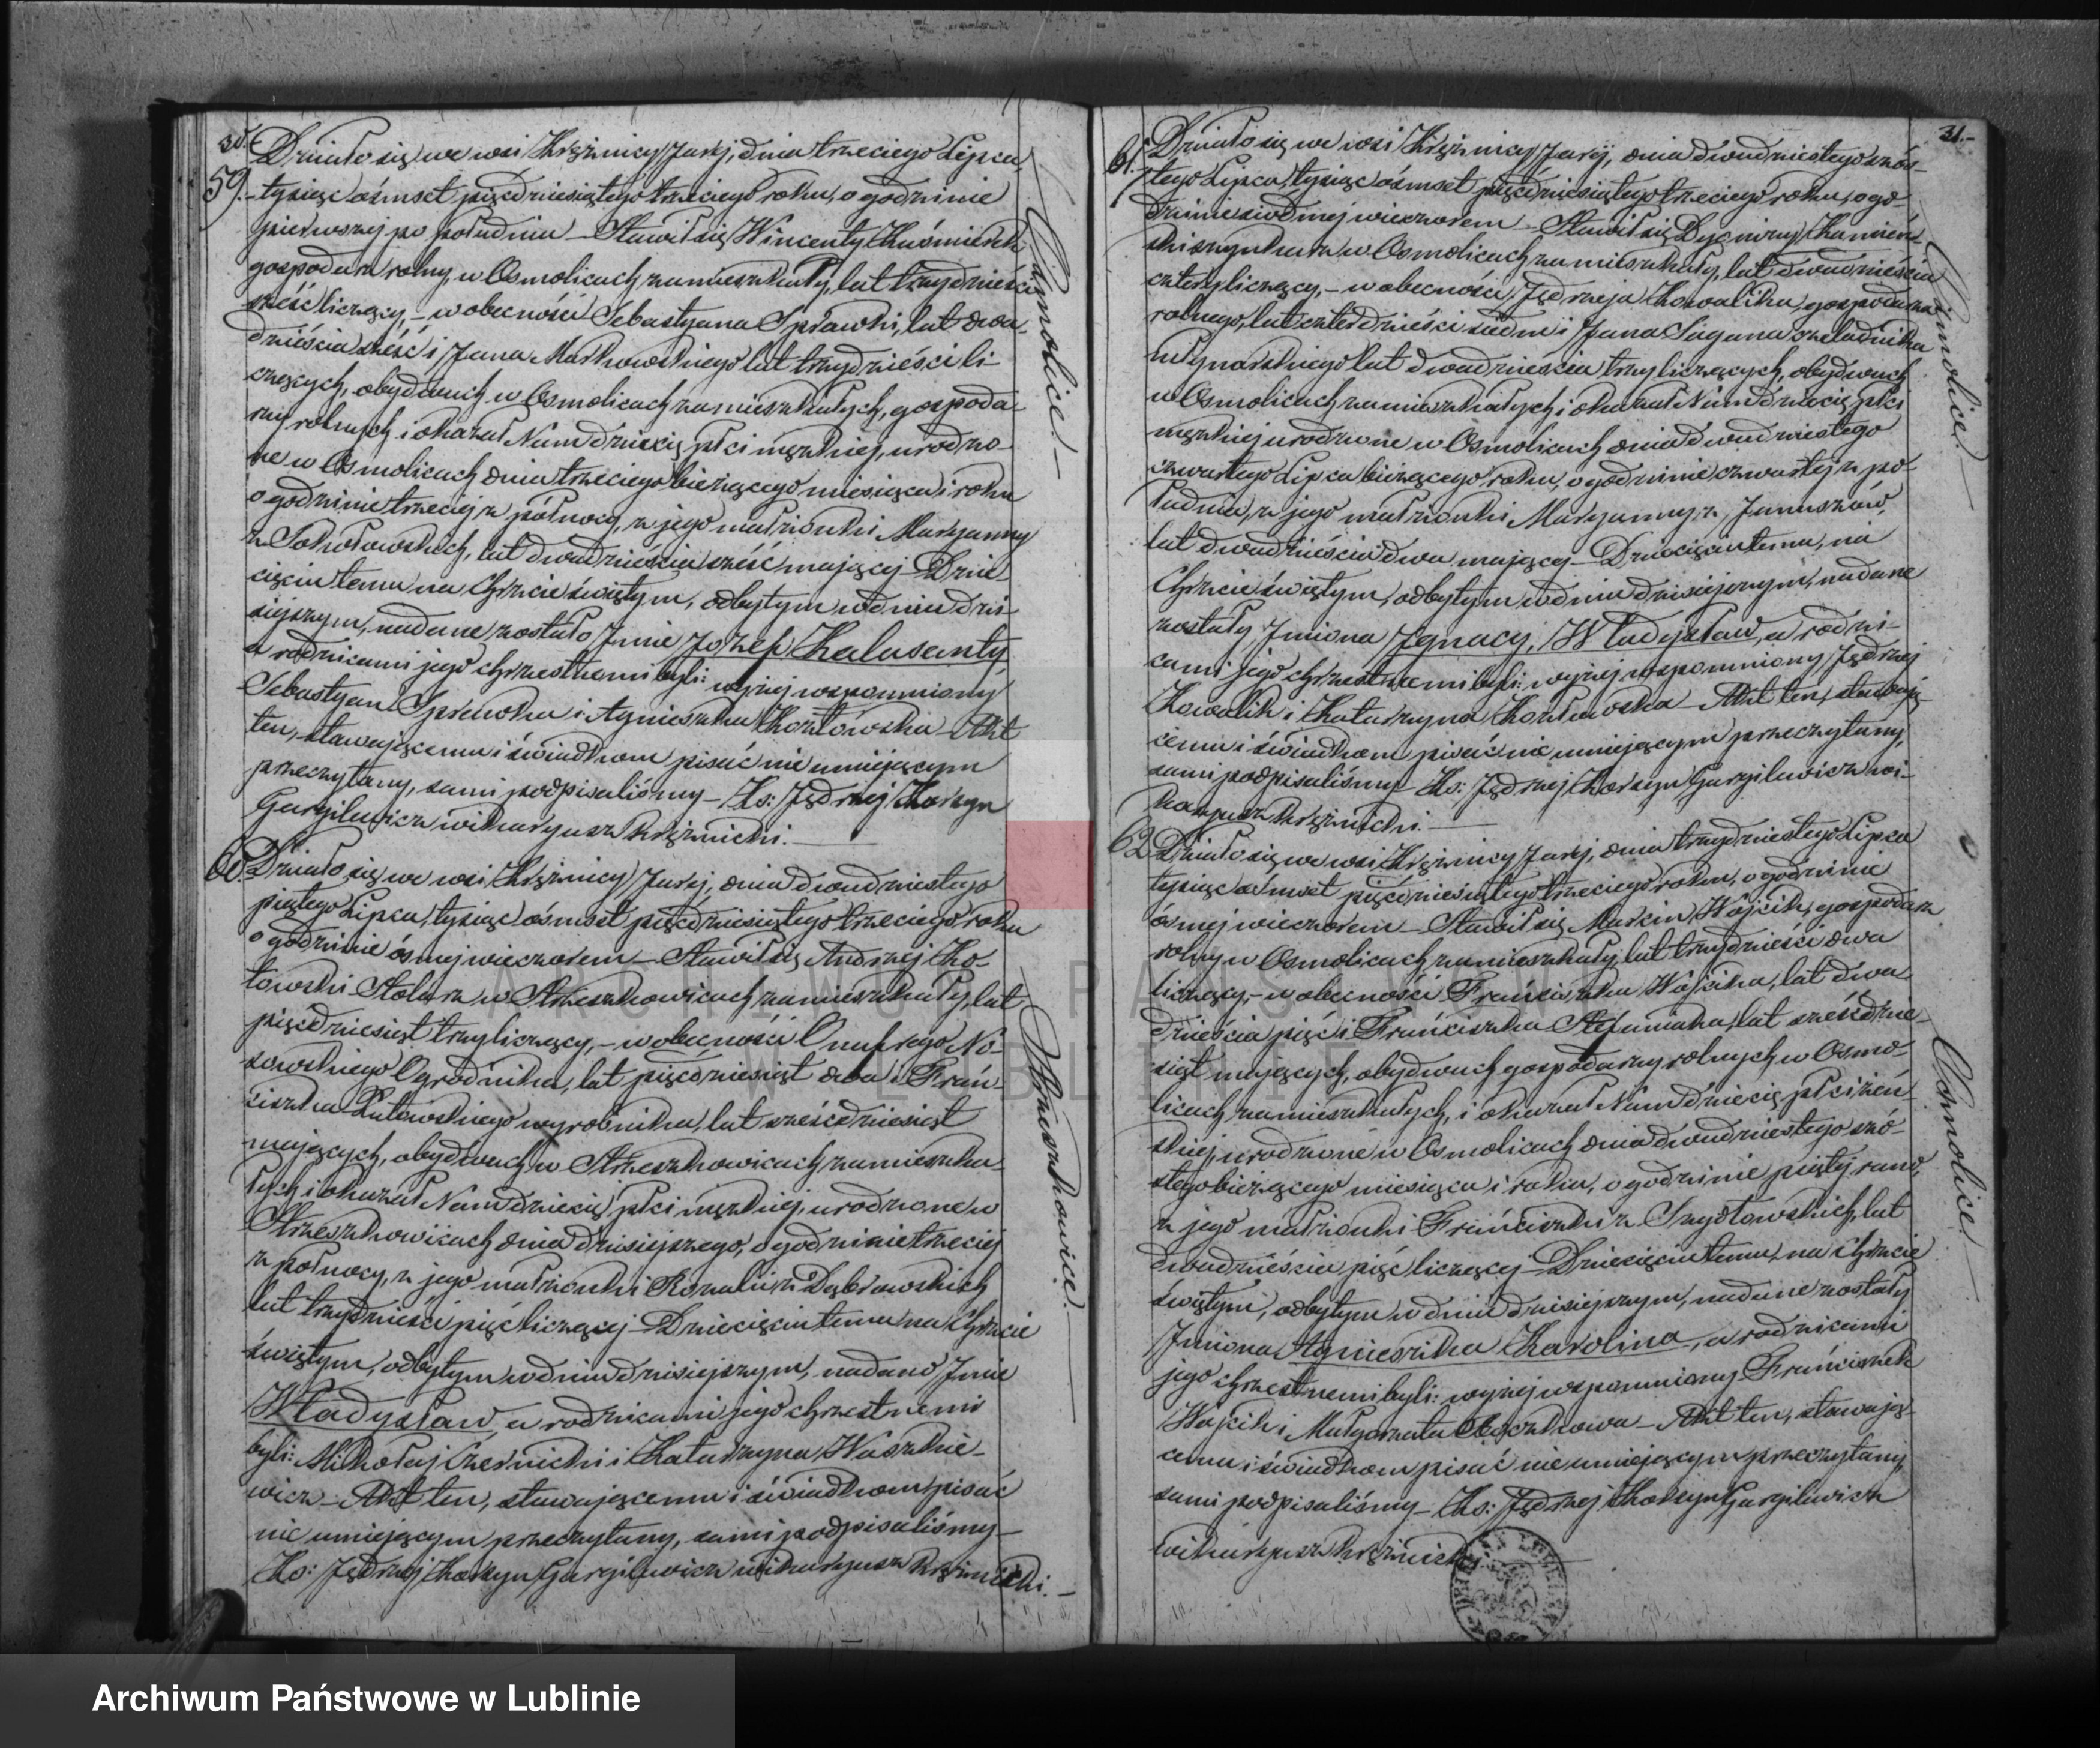 30.
59.
Działo się we wsi Krężnicy Jarej, dnia trzeciego Lipca,
tysiąc ośmset pięćdziesiątego trzeciego roku, o godzinie
pierwszej po południu – Stawił się Wincenty Kuśmierek
gospodarz rolny, w Osmolicach zamieszkały, lat trzydzieści
sześć liczący, – w obecności Sebastyana Sprawki, lat dwa-
dzieścia sześć i Jana Markowskiego lat trzydzieści li-
czących, obydwuch w Osmolicach zamieszkałych, gospoda-
rzy rolnych i okazał Nam dziecię płci męzkiej, urodzo-
ne w Osmolicach dnia trzeciego bieżącego miesiąca i roku
o godzinie trzeciej z północy, z jego małżonki Maryanny
z Sokołowskich, lat dwadzieścia sześć mającej – Dzie-
cięciu temu na Chrzcie świętym, odbytym w dniu dzi-
siejszym, nadane zostało Jmie Jozef Kalasanty
a rodzicami jego chrzestnemi byli: wyżej wspomniony
Sebastyan Sprawka i Agnieszka Kozłowska – Akt
ten, stawającemu i świadkom pisać nie umiejącym
przeczytany, sami podpisaliśmy – Ks: Jędrzej Korsyn
Gurgilewicz wikaryusz krężnicki.
Osmolice.
60.
Działo się we wsi Krężnicy Jarej, dnia dwudziestego
piątego Lipca, tysiąc ośmset pięćdziesiątego trzeciego roku
o godzinie ósmej wieczorem – Stawił się Andrzej Ko-
towski Stolarz w Strzeszkowicach zamieszkały, lat
pięćdziesiąt trzy liczący, – w obecności Onufrego No-
sowskiego Ogrodnika, lat pięćdziesiąt dwa i Fran-
ciszka Lutowskiego wyrobnika, lat sześćdziesiąt
mających, obydwuch w Strzeszkowicach zamieszka-
łych i okazał Nam dziecię płci męzkiej, urodzone w
Strzeszkowicach dnia dzisiejszego, o godzinie trzeciej
z północy, z jego małżonki Rozalii z Dąbrowskich
lat trzydzieści pięć liczącej – Dziecięciu temu na Chrzcie
świętym, odbytym w dniu dzisiejszym, nadano Jmie
Władysław, a rodzicami jego chrzestnemi
byli: Mikołaj Czernicki i Katarzyna Waszkie-
wicz – Akt ten, stawającemu i świadkom pisać
nie umiejącym przeczytany, sami podpisaliśmy –
Ks: Jędrzej Korsyn Gurgilewicz wikaryusz krężnicki. –
Strzeszkowice.
31.
61.
Działo się we wsi Krężnicy Jarej, dnia dwudziestego szós-
tego Lipca, tysiąc ośmset pięćdziesiątego trzeciego roku, o go-
dzinie siódmej wieczorem – Stawił się Dyonizy Kamień-
ski szynkarz w Osmolicach zamieszkały, lat dwadzieścia
cztery liczący, – w obecności Jędrzeja Kowalika gospodarza
rolnego, lat czterdzieści siedm i Jana Sagana czeladnika
młynarskiego lat dwadzieścia trzy liczących, obydwuch
w Osmolicach zamieszkałych i okazał Nam dziecię płci
męzkiej urodzone w Osmolicach dnia dwudziestego
czwartego Lipca bieżącego roku, o godzinie czwartej z po-
łudnia, z jego małżonki Maryanny z Januszów,
lat dwadzieścia dwa mającej – Dziecięciu temu, na
Chrzcie świętym, odbytym w dniu dzisiejszym, nadane
zostały Jmiona Jgnacy, Władysław, a rodzi-
cami jego chrzestnemi byli: wyżej wspomniony Jędrzej
Kowalik i Katarzyna Kozłowska – Akt ten, stawają-
cemu i świadkom pisać nie umiejącym przeczytany,
sami podpisaliśmy – Ks: Jędrzej Korsyn Gurgilewicz wi-
karyusz krężnicki.
Osmolice.
62
Działo się we wsi Krężnicy Jarej, dnia trzydziestego Lipca
tysiąc ośmset pięćdziesiątego trzeciego roku, o godzinie
ósmej wieczorem – Stawił się Marcin Wójcik, gospodarz
rolny w Osmolicach zamieszkały, lat trzydzieści dwa
liczący, – w obecności Franciszka Wójcika, lat dwa-
dzieścia pięć i Franciszka Stefaniaka, lat sześćdzie-
siąt mających, obydwuch gospodarzy rolnych w Osmo-
licach zamieszkałych, i okazał Nam dziecię płci żeń-
skiej, urodzone w Osmolicach dnia dwudziestego szó-
stego bieżącego miesiąca i roku, o godzinie piątej rano,
z jego małżonki Franciszki z Szydłowskich, lat
dwadzieścia pięć liczącej – Dziecięciu temu, na Chrzcie
świętym, odbytym w dniu dzisiejszym, nadane zostały
Jmiona Agnieszka Karolina, a rodzicami
jego chrzestnemi byli: wyżej wspomniony Franciszek
Wójcik i Małgorzata – Akt ten, stawają-
cemu i świadkom pisać nie umiejącym przeczytany,
sami podpisaliśmy – Ks: Jędrzej Korsyn Gurgilewicz
wikaryusz krężnicki
Osmolice.
ARCHIWUM PAŃSTWOWE
W LUBLINIE
Archiwum Państwowe w Lublinie